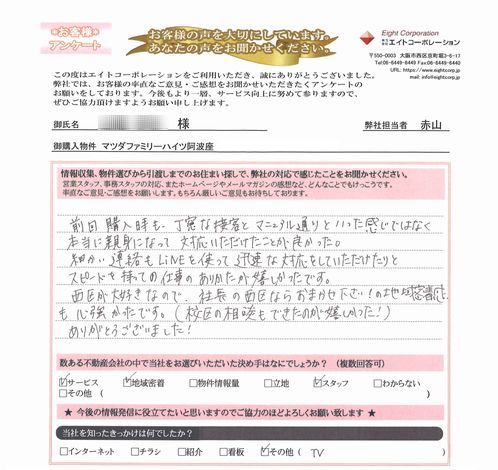 お客様
アンケート
お客様の声を大切にしています。
あなたの声をお聞かせください。
Eight Corporation
株式会社エイトコーポレーション
〒550-0003 大阪市西区京町堀3-6-17
Tel:06-6449-6449 Fax:06-6449-6440
URL: https://www.eightcorp.jp
mail: info@eightcorp.jp
この度はエイトコーポレーションをご利用いただき、誠にありがとうございました。
弊社では、お客様の率直なご意見・ご感想をお聞かせいただきたくアンケートの
お願いをしております。今後もより一層、サービス向上に努めて参りますので、
ぜひご協力頂けますようお願い申し上げます。
御氏名 様 弊社担当者 赤山
御購入物件 マツダファミリーハイツ阿波座
情報収集、物件選びから引渡しまでのお住まい探しで、弊社の対応で感じたことをお聞かせください。
営業スタッフ、事務スタッフの対応、またホームページやメールマガジンの感想など、どんなことでもけっこうです。
率直なご意見・ご感想をお願いします。もちろん厳しいご意見もお待ちしております。
前回購入時も、丁寧な接客とマニュアル通りといった感じではなく
本当に親身になって対応いただけたことが良かった。
細かい連絡もLINEを使って迅速な対応をしていただけたりと
スピードを持っての仕事のありかたが嬉しかったです。
西区が大好きなので、社長の西区ならおまかせ下さい!の地域密着感
も心強かたです。(校区の相談もできたのが嬉しかった!)
ありがとうございました!
数ある不動産会社の中で当社をお選びいただいた決め手はなにでしょうか? (複数回答可)
☑サービス ☑地域密着 □物件情報量 □立地 ☑スタッフ □わからない
□その他 ( )
★ 今後の情報発信に役立てたいと思いますのでご協力のほどよろしくお願い致します ★
当社を知ったきっかけは何でしたか?
□インターネット □チラシ □紹介 □看板 ☑その他 ( TV )